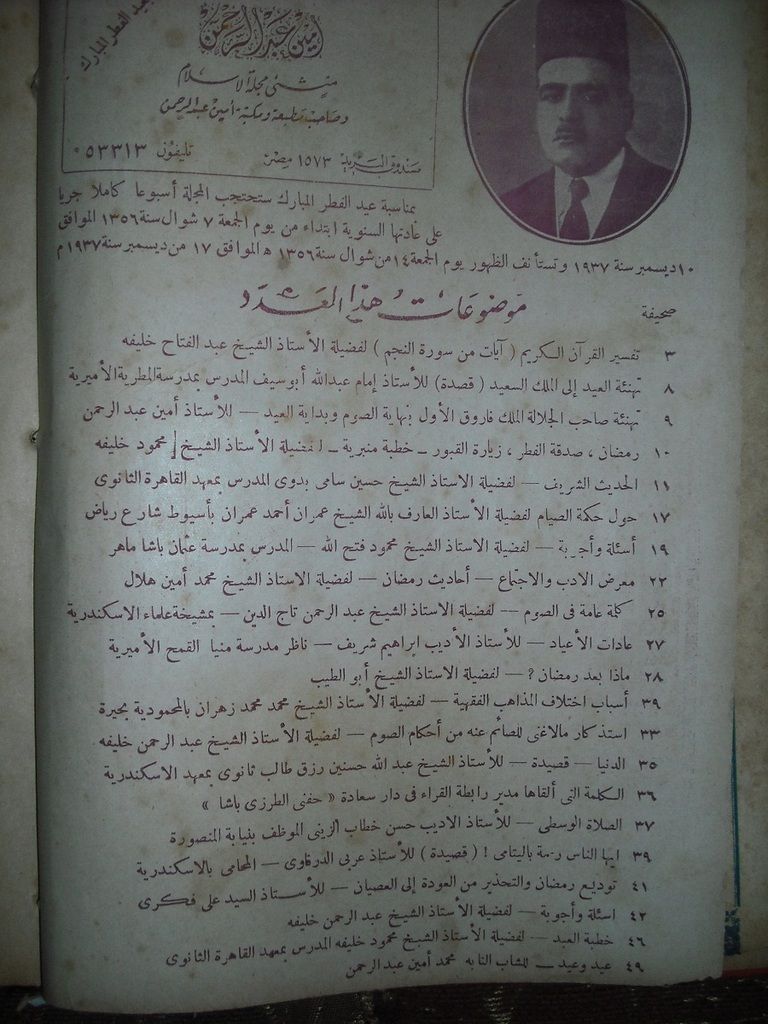 عيد الفطر المبارك
أمين عبد الرحمن
منشئ مجلة الاسلام
وصاحب مطبعة ومكتبة أمين عبد الرحمن
صندوق البريد ١٥٧٣ مصر تليفون ٥٣٣١٣
بمناسبة عيد الفطر المبارك ستحتجب المجلة أسبوعا كاملا جريا
على عادتها السنوية ابتداء من يوم الجمعة ٧ شوال سنة ١٣٥٦ الموافق
١٠ ديسمبر سنة ١٩٣٧ وتستأنف الظهور يوم الجمعة ١٤ من شوال سنة ١٣٥٦ ه الموافق ١٧ من ديسمبر سنة ١٩٣٧ م
موضوعات هذا العدد
صحيفة
٣ تفسير القرآن الكريم ( آيات من سورة النجم ) لفضيلة الأستاذ الشيخ عبد الفتاح خليفه
٨ تهنئة العيد إلى الملك السعيد ( قصدة ) للأستاذ إمام عبدالله أبو سيف المدرس بمدرسة المطرية الأميرية
٩ تهنئة صاحب الجلالة الملك فاروق الأول بنهاية الصوم وبداية العيد — للأستاذ أمين عبد الرحمن
١٠ رمضان ، صدقة الفطر ، زيارة القبور — خطبة منبرية — لفضيلة الأستاذ الشيخ محمود خليفه
١١ الحديث الشريف — لفضيلة الاستاذ الشيخ حسين سامى بدوى المدرس بمعهد القاهرة الثانوى
١٧ حول حكمة الصيام لفضيلة الأستاذ العارف بالله الشيخ عمران أحمد عمران بأسيوط شارع رياض
١٩ أسئلة وأجوبة — لفضيلة الاستاذ الشيخ محمود فتح الله — المدرس بمدرسة عثمان باشا ماهر
٢٢ معرض الادب والاجتماع — أحاديث رمضان — لفضيلة الاستاذ الشيخ محمد أمين هلال
٢٥ كلمة عامة فى الصوم — لفضيلة الاستاذ الشيخ عبد الرحمن تاج الدين — بمشيخة علماء الاسكندرية
٢٧ عادات الأعياد — للأستاذ الأديب ابراهيم شريف — ناظر مدرسة منيا القمح الأميرية
٢٨ ماذا بعد رمضان ? — لفضيلة الاستاذ الشيخ أبو الطيب
٣٩ أسباب اختلاف المذاهب الفقهية — لفضيلة الأستاذ الشيخ محمد محمد زهران بالمحمودية بحيرة
٣٣ استذكار مالاغنى للصائم عنه من أحكام الصوم — لفضيلة الأستاذ الشيخ عبد الرحمن خليفه
٣٥ الدنيا — قصيدة — للأستاذ الشيخ عبد الله حسنين رزق طالب ثانوى بمعهد الاسكندرية
٣٦ الكلمة التى ألقاها مدير رابطة القراء فى دار سعادة « حفنى الطرزى باشا »
٣٧ الصلاة الوسطى — للأستاذ الاديب حسن خطاب الزينى الموظف بنيابة المنصورة
٣٩ ايها الناس رحمة باليتامى ! ( قصيدة ) للأستاذ عربى الدرقاوى — المحامى بالاسكندرية
٤١ توديع رمضان والتحذير من العودة إلى العصيان — للأستاذ السيد على فكرى
٤٢ اسئلة وأجوبة — لفضيلة الأستاذ الشيخ عبد الرحمن خليفه
٤٦ خطبة العيد — لفضيلة الأستاذ الشيخ محمود خليفه المدرس بمعهد القاهرة الثانوى
٤٩ عيد وعيد — للشاب النابه محمد أمين عبد الرحمن